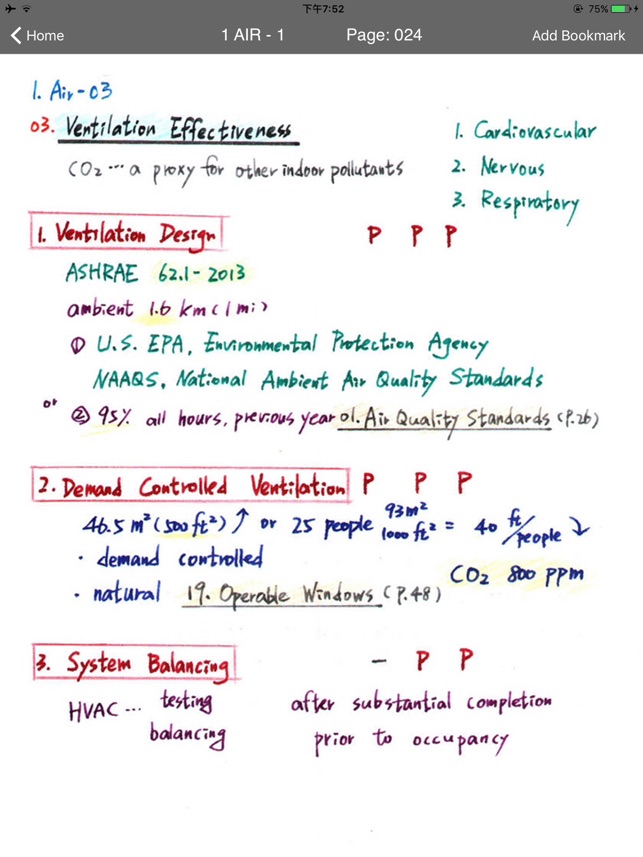 下午7:52
75%
Home
1 AIR - 1
Page: 024
Add Bookmark
1. Air-03
03. Ventilation Effectiveness
CO2 ... a proxy for other indoor pollutants
1. Cardiovascular
2. Nervous
3. Respiratory
1. Ventilation Design P P P
ASHRAE 62.1-2013
ambient 1.6 km (1 mi)
① U.S. EPA, Environmental Protection Agency
NAAQS, National Ambient Air Quality Standards
or ② 95% all hours, previous year 01. Air Quality Standards (P.26)
2. Demand Controlled Ventilation P P P
46.5 m² (500 ft²) ↑ or 25 people 93m² 1000 ft² = 40 ft/people ↘
· demand controlled
· natural 19. Operable Windows (P.48)
CO2 800 ppm
3. System Balancing – P P
HVAC ... testing balancing
after substantial completion
prior to occupancy